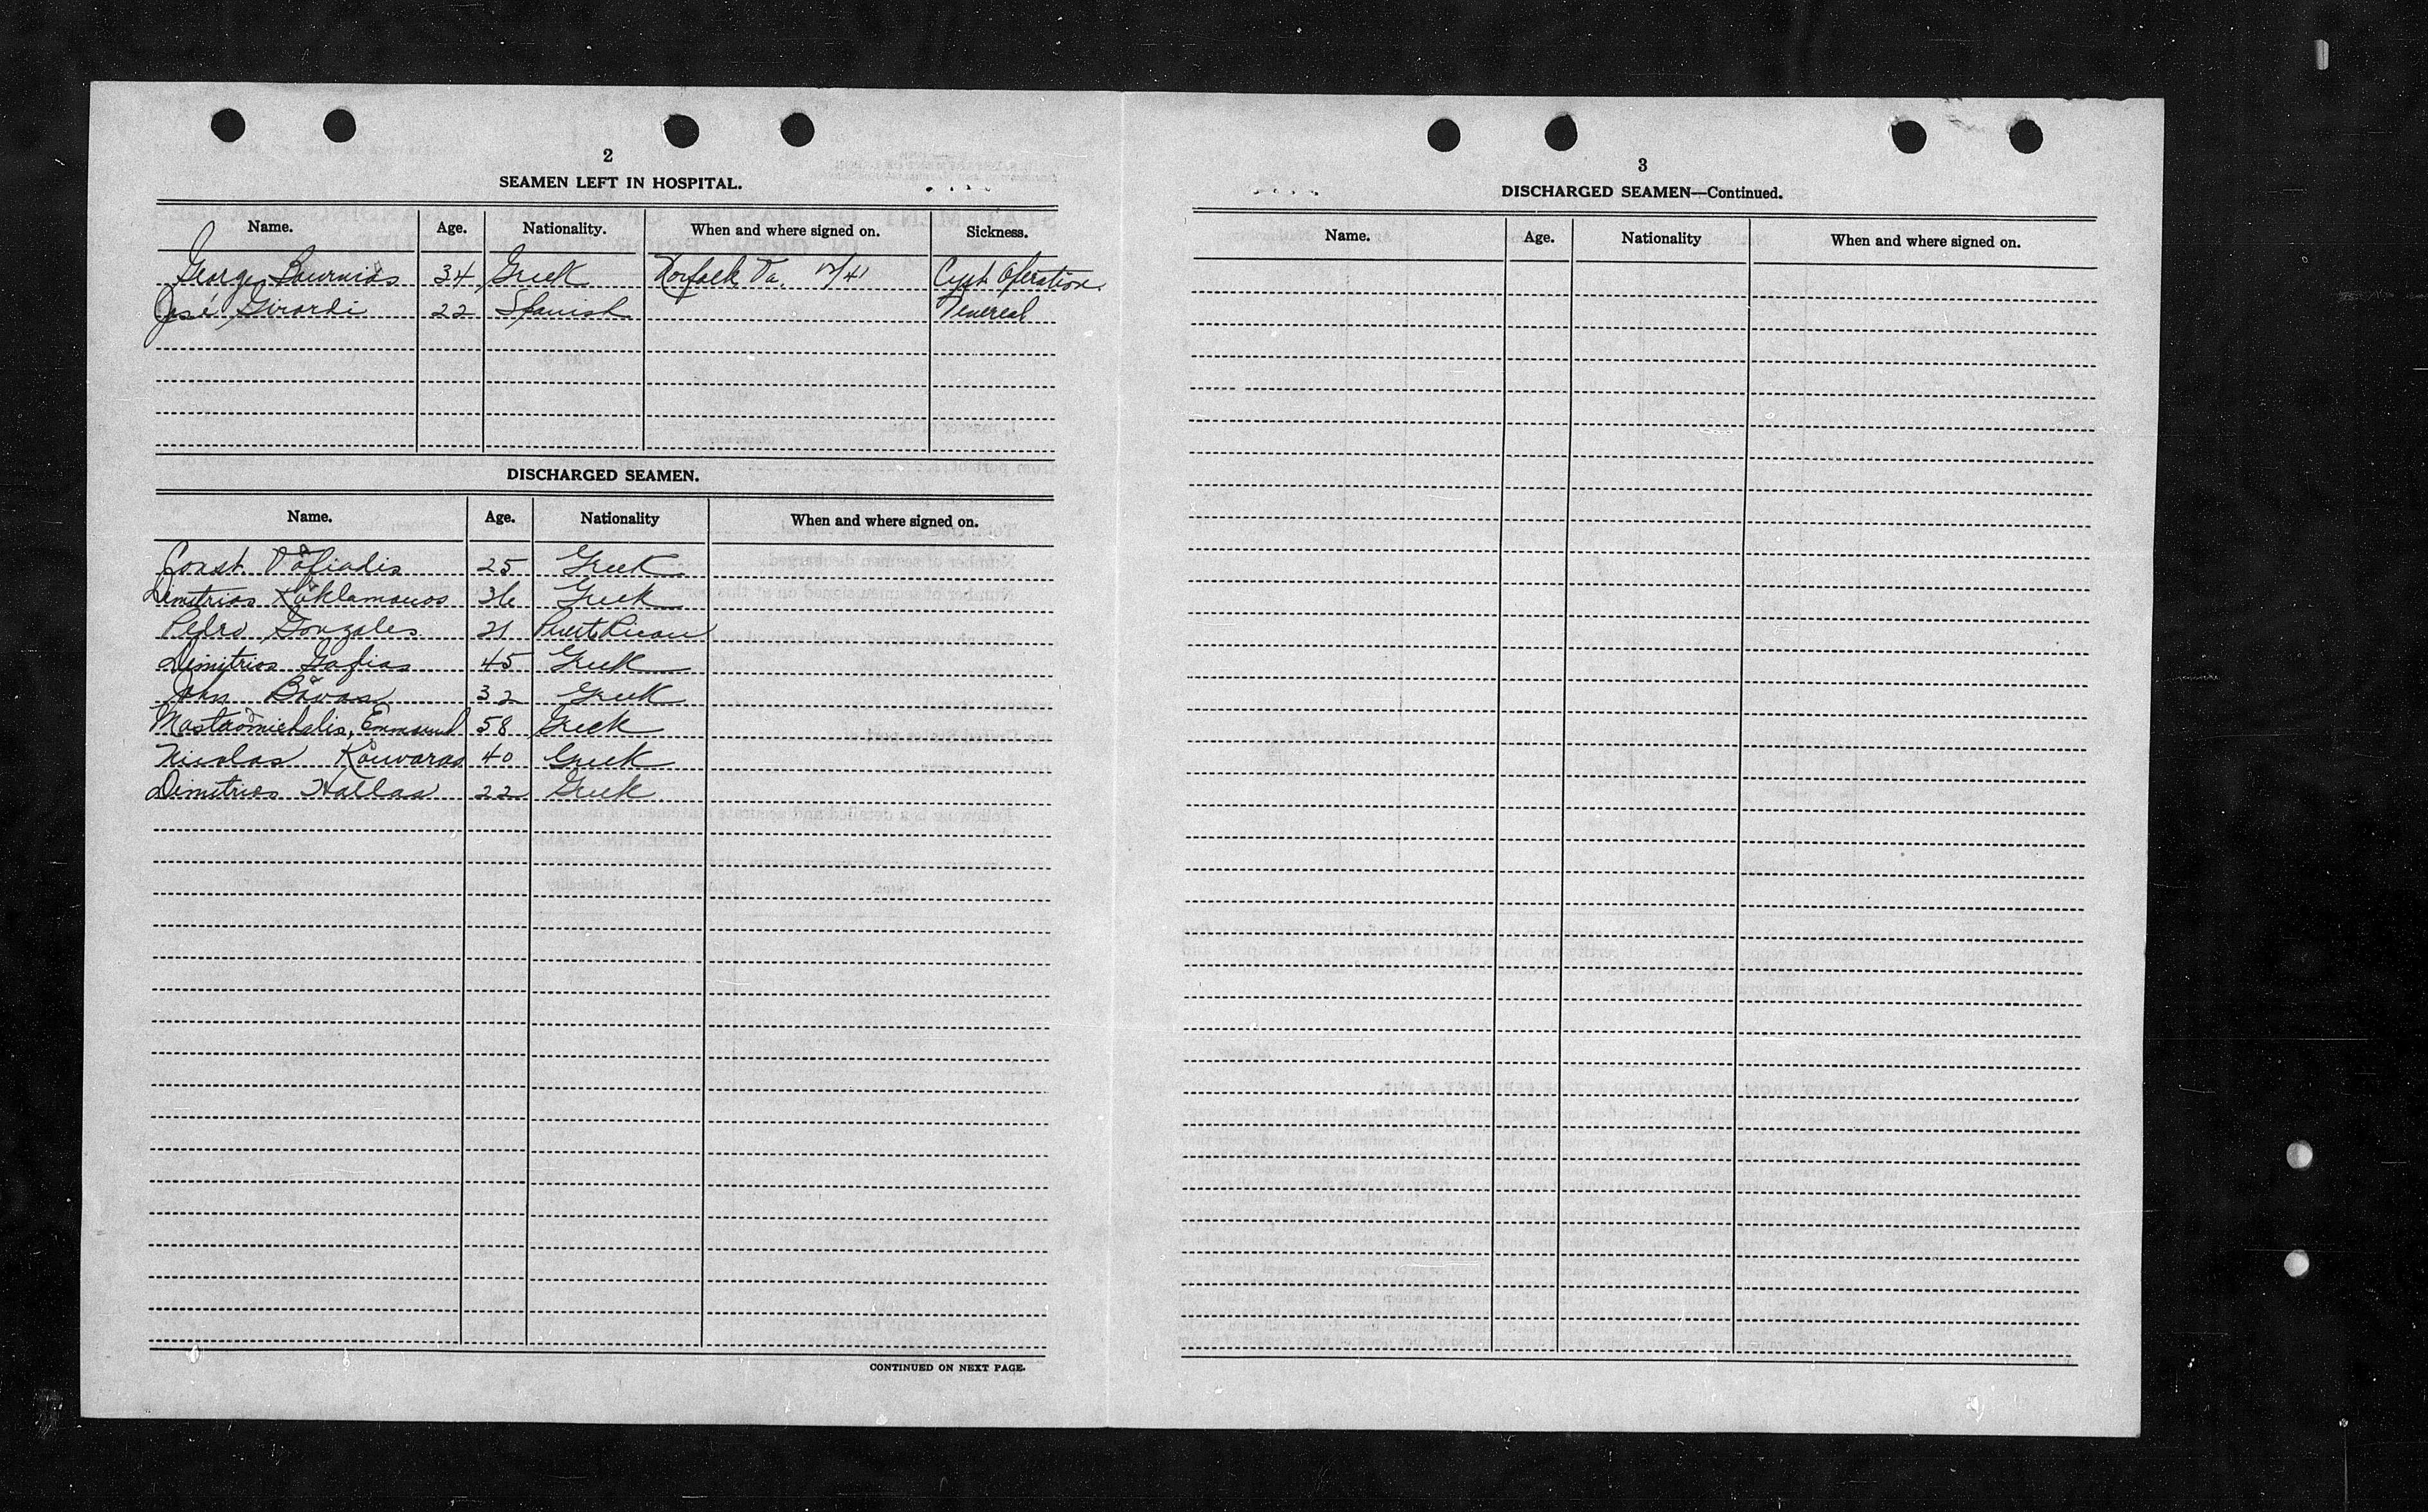 2
SEAMEN LEFT IN HOSPITAL.
Name. Age. Nationality. When and where signed on. Sickness.
George Bournias 34 Greek Norfolk Va. Cyst Operation.
José Girardi 22 Spanish Venereal
DISCHARGED SEAMEN.
Name. Age. Nationality When and where signed on.
Const. Vafiadis 25 Greek
Dimitrios Kaklamanos 36 Greek
Pedro Gonzales 21 Puerto Rican
Dimitrios Gafias 45 Greek
John Bavas 32 Greek
Mastromichalis, 58 Greek
Nicolas Kouvaras 40 Greek
Dimitrios Hallas 22 Greek
CONTINUED ON NEXT PAGE.
3
DISCHARGED SEAMEN—Continued.
Name. Age. Nationality When and where signed on.